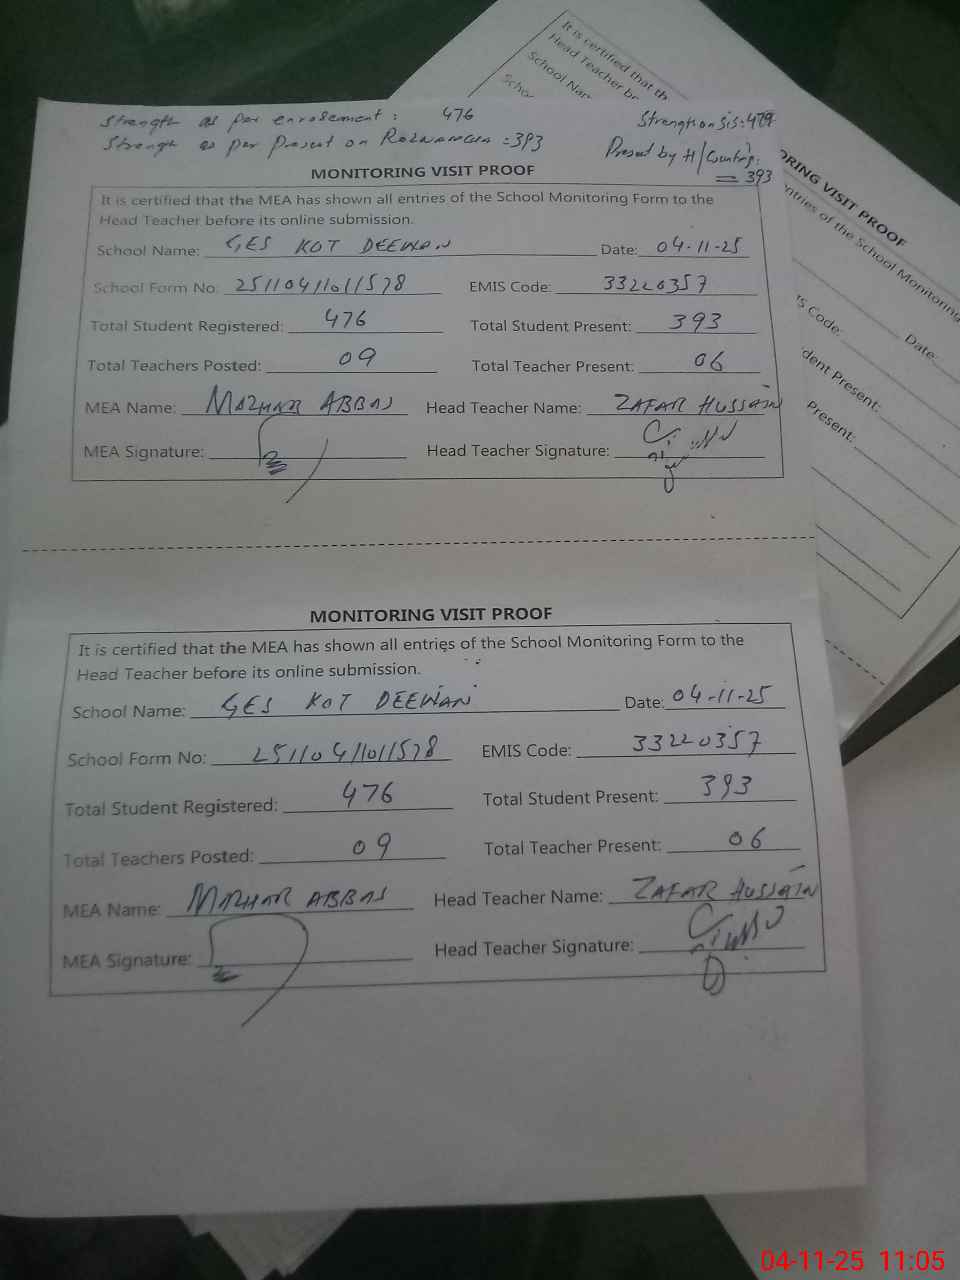 Strength as per enrolement: 476
Strength on SIS: 479
Strength as per Present on Roznamcha = 393
Present by H/Counting:
= 393
MONITORING VISIT PROOF
It is certified that the MEA has shown all entries of the School Monitoring Form to the
Head Teacher before its online submission.
School Name: GES KOT DEEWAN Date: 04-11-25
School Form No: 25110411011578 EMIS Code: 33220357
Total Student Registered: 476 Total Student Present: 393
Total Teachers Posted: 09 Total Teacher Present: 06
MEA Name: MAZHAR ABBAS Head Teacher Name: ZAFAR HUSSAIN
MEA Signature: Head Teacher Signature:
MONITORING VISIT PROOF
It is certified that the MEA has shown all entries of the School Monitoring Form to the
Head Teacher before its online submission.
School Name: GES KOT DEEWAN Date: 04-11-25
School Form No: 25110411011578 EMIS Code: 33220357
Total Student Registered: 476 Total Student Present: 393
Total Teachers Posted: 09 Total Teacher Present: 06
MEA Name: MAZHAR ABBAS Head Teacher Name: ZAFAR HUSSAIN
MEA Signature: Head Teacher Signature:
It is certified that th
Head Teacher be
School Nar
Scho
ORING VISIT PROOF
ntries of the School Monitoring
Date:
IS Code:
dent Present:
Present:
04-11-25 11:05